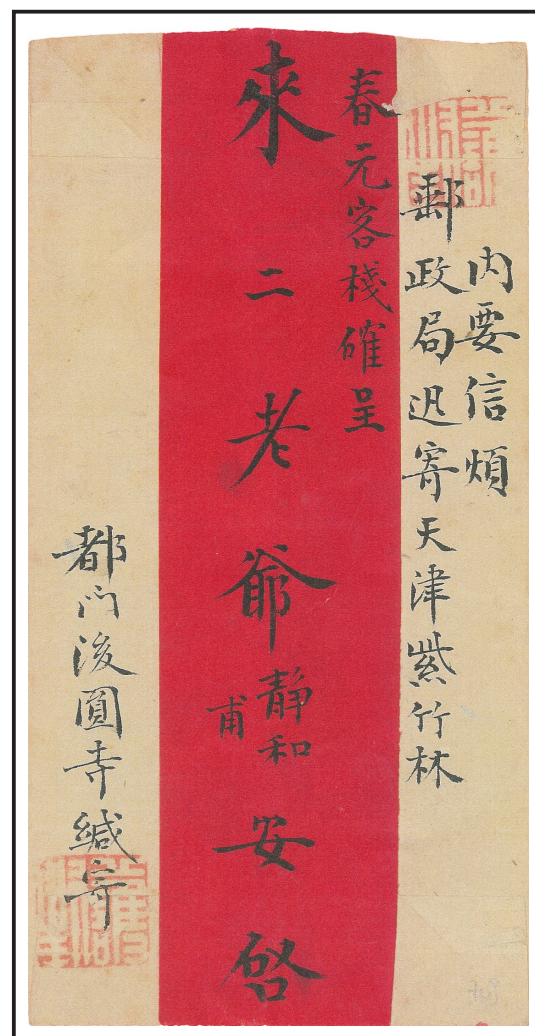 内要信煩
郵政局迅寄天津紫竹林
春元客棧確呈
來二老爺靜和甫安啓
都门後圓寺緘寄